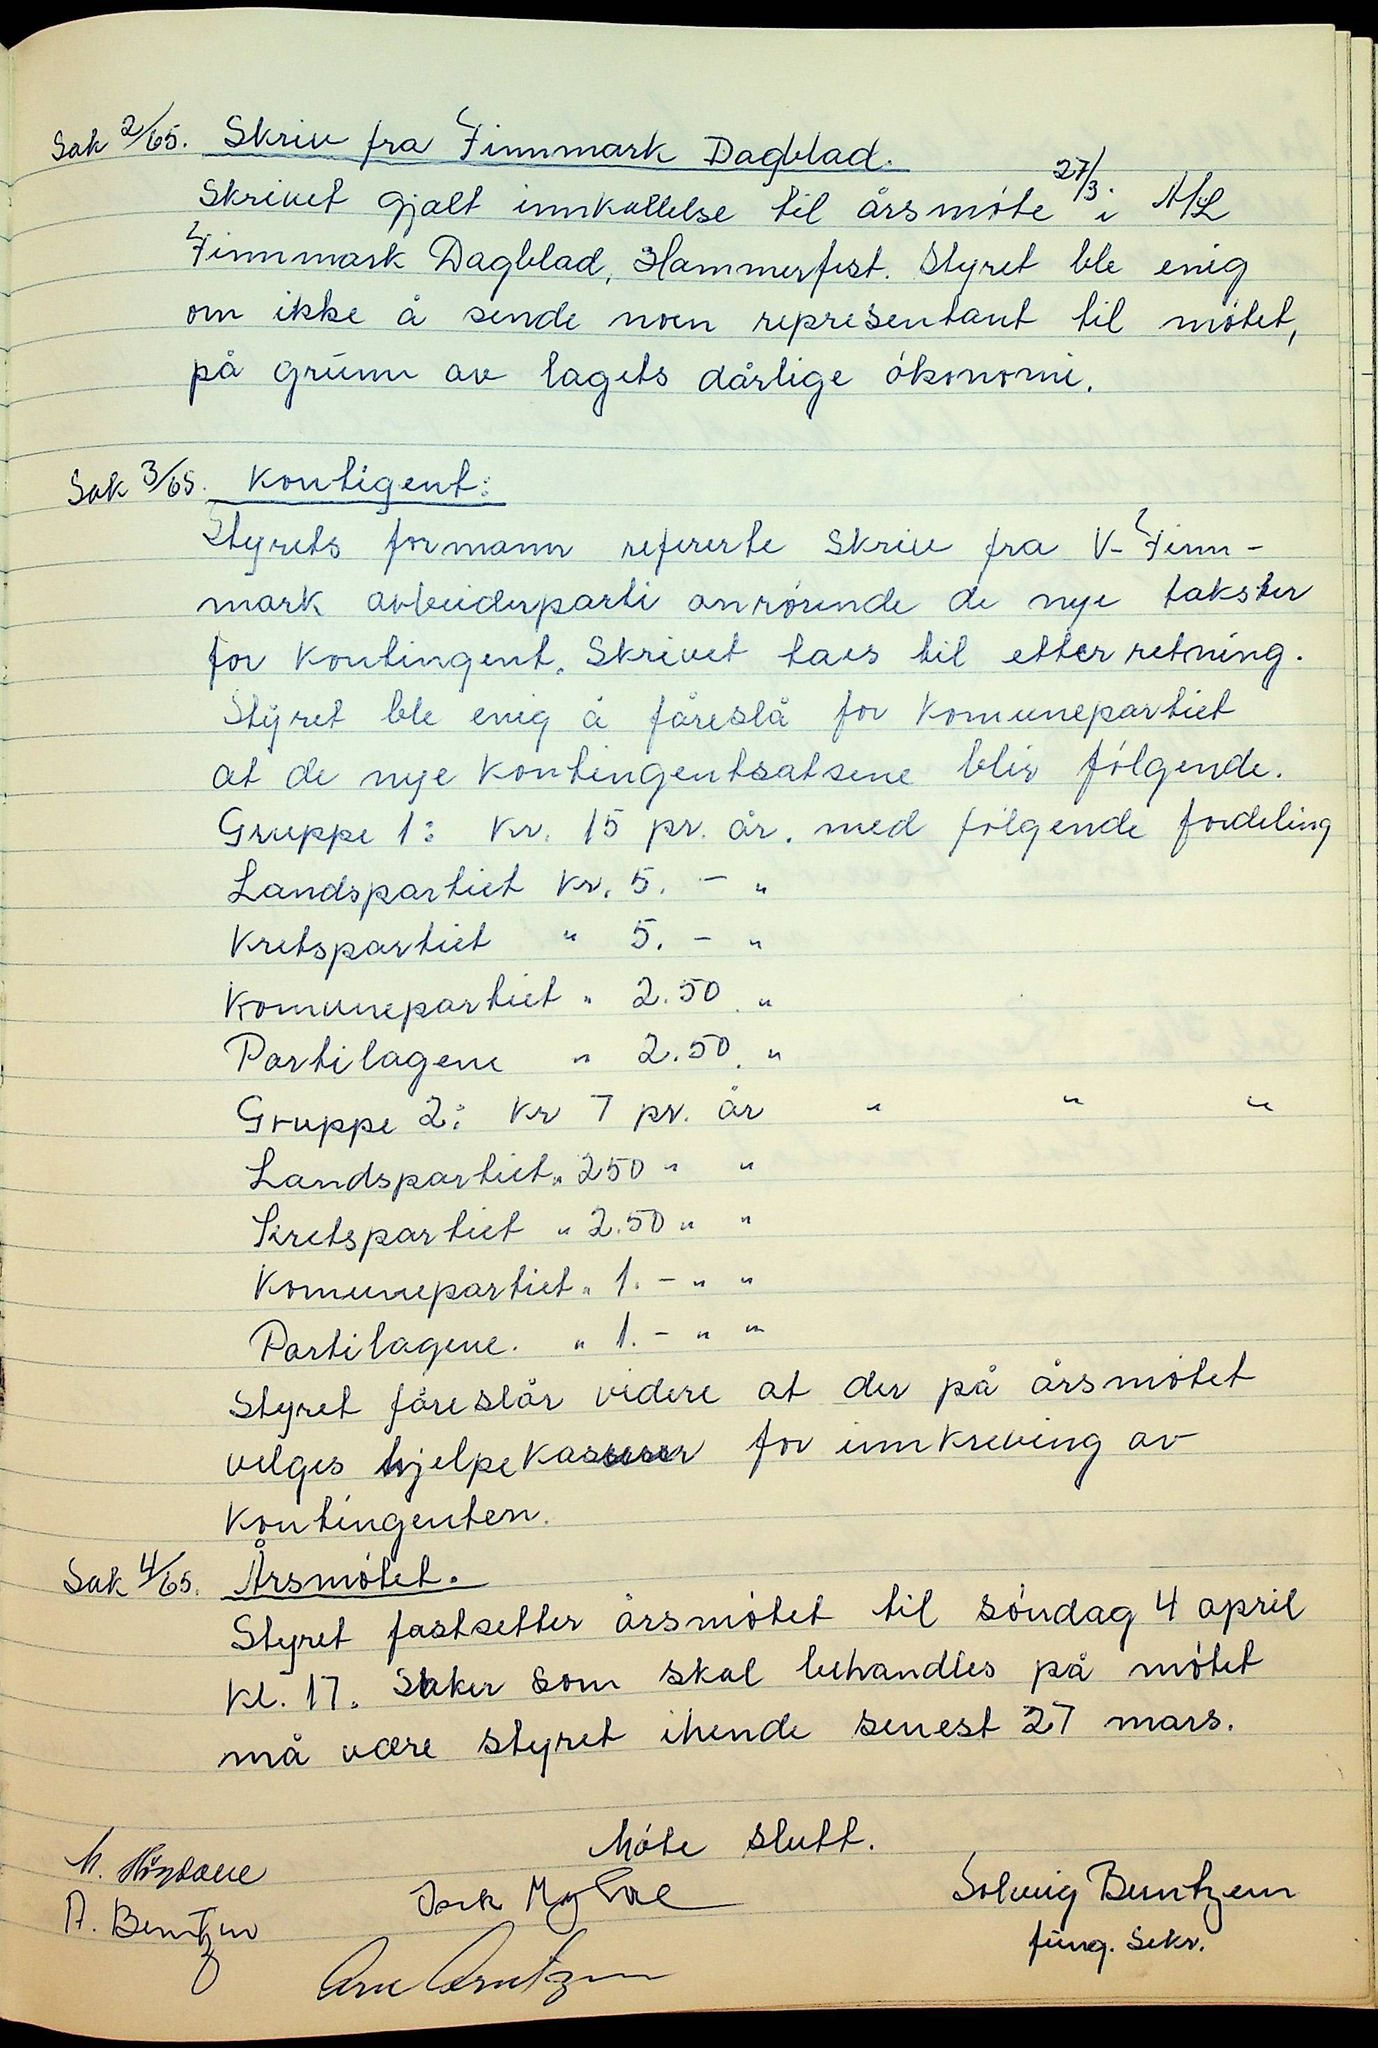 Sak 2/65. Skriv fra Finnmark Dagblad.
Skrivet gjalt innkallelse til årsmöte 27/3 i A/L
Finnmark Dagblad, Hammerfest. Styret ble enig
om ikke å sende noen representant til mötet,
på grunn av lagets dårlige ökonomi.
Sak 3/65. Kontigent:
Styrets formann refererte skriv fra V-Finn-
mark arbeiderparti anrörende de nye takster
for kontingent. Skrivet taes til etterretning.
Styret ble enig å föreslå for Komunepartiet
at de nye kontingentsatsene blir fölgende.
Gruppe 1: Kr. 15 pr. år. med fölgende fordeling
Landspartiet Kr. 5. - "
Kretspartiet " 5. - "
Komunepartiet " 2.50 "
Partilagene " 2.50. "
Gruppe 2: Kr 7 pr. år " " "
Landspartiet " 250 " "
Kretspartiet " 2.50 " "
Komunepartiet " 1. - " "
Partilagene. " 1. - " "
Styret föreslår videre at der på årsmötet
velges hjelpekasserer for innkreving av
Kontingenten.
Sak 4/65. Årsmötet.
Styret fastsetter årsmötet til söndag 4 april
Kl. 17. Saker som skal behandles på mötet
må være styret ihende senest 27 mars.
Möte slutt.
A. Bentzen
Solveig Bentzen
fung. Sekr.